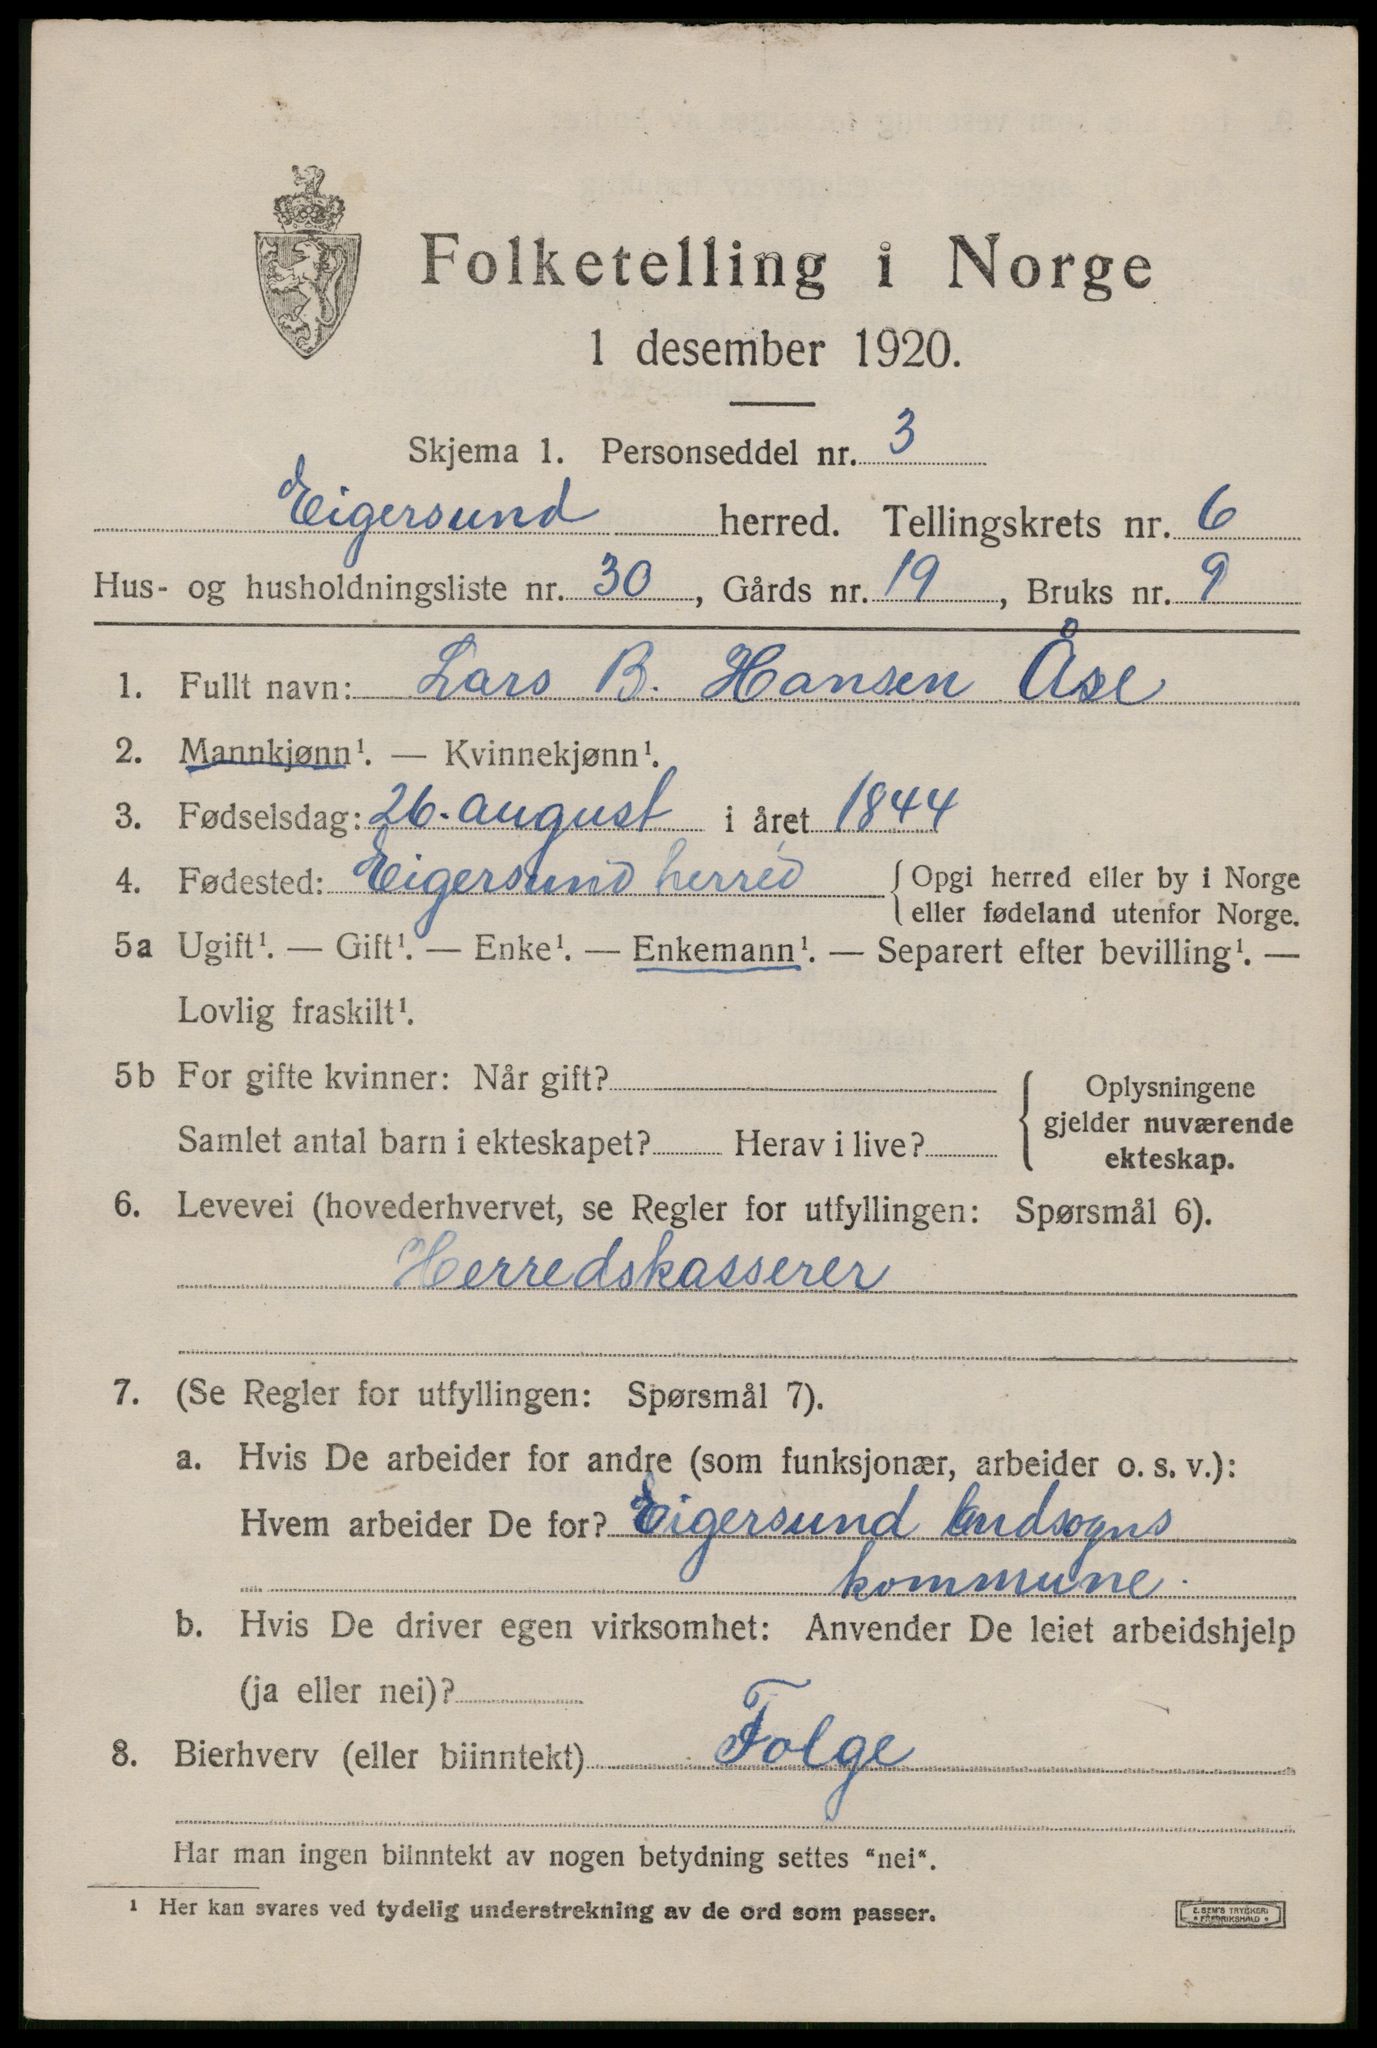 Folketelling i Norge
1 desember 1920.
Skjema 1. Personseddel nr. 3
Eigersund herred. Tellingskrets nr. 6
Hus- og husholdningsliste nr. 30, Gårds nr. 19, Bruks nr. 9
1. Fullt navn: Lars B. Hansen Åse
2. Mannkjønn¹. — Kvinnekjønn¹.
3. Fødselsdag: 26. august i året 1844
4. Fødested: Eigersund herred { Opgi herred eller by i Norge
eller fødeland utenfor Norge.
5a Ugift¹. — Gift¹. — Enke¹. — Enkemann¹. — Separert efter bevilling¹. —
Lovlig fraskilt¹.
5b For gifte kvinner: Når gift? { Oplysningene
gjelder nuværende
Samlet antal barn i ekteskapet? Herav i live?
ekteskap.
6. Levevei (hovederhvervet, se Regler for utfyllingen: Spørsmål 6).
Herredskasserer
7. (Se Regler for utfyllingen: Spørsmål 7).
a. Hvis De arbeider for andre (som funksjonær, arbeider o. s. v.):
Hvem arbeider De for? Eigersund landsogns
kommune.
b. Hvis De driver egen virksomhet: Anvender De leiet arbeidshjelp
(ja eller nei)?
8. Bierhverv (eller biinntekt) Folge
Har man ingen biinntekt av nogen betydning settes "nei".
¹ Her kan svares ved tydelig understrekning av de ord som passer.
E. SEM'S TRYKKERI
FREDRIKSHALD